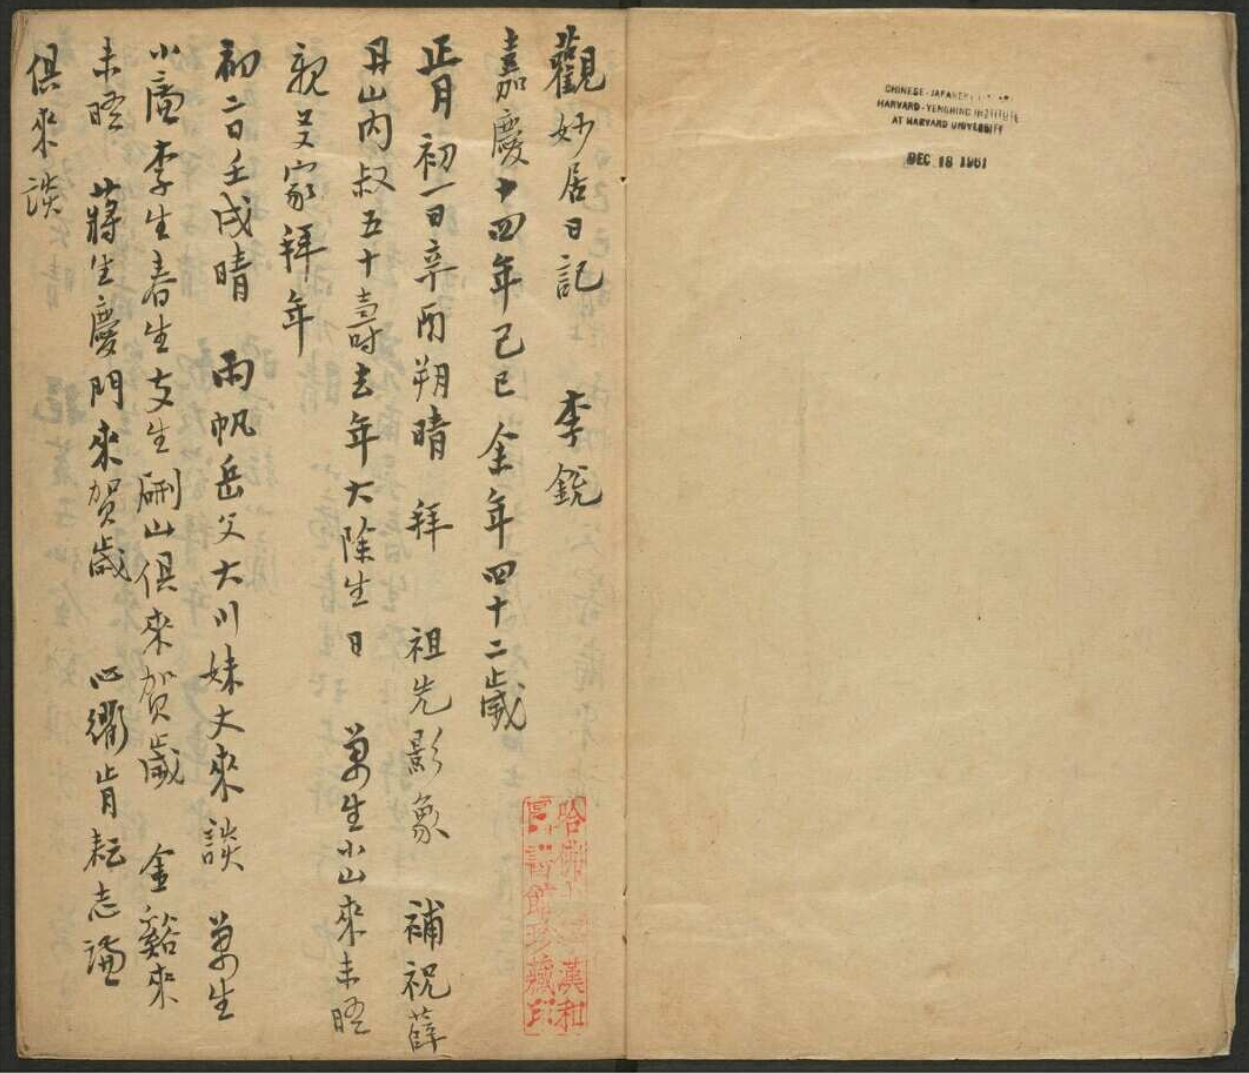 觀妙居日記 李銳
嘉慶十四年己巳 余年四十二歲
正月初一日辛酉朔晴 拜 祖先影象 補祝薛
丹山內叔五十壽去年大除生日 萬生小山來未晤
親友家拜年
初二日壬戌晴 雨帆岳父大川妹丈來談 萬生
小庿李生春生支生硎山俱來賀歲 金谿來
未晤 蔣生慶門來賀歲 心衢肯耘志謙
俱來談
哈佛大學漢和
圖書館珍藏印
CHINESE-JAPANESE
HARVARD-YENCHING INSTITUTE
AT HARVARD UNIVERSITY
DEC 18 1961